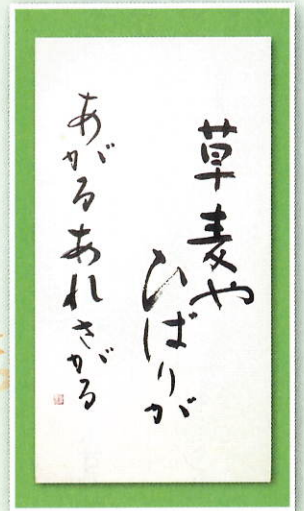 草麦や
ひばりが
あがるあれさがる